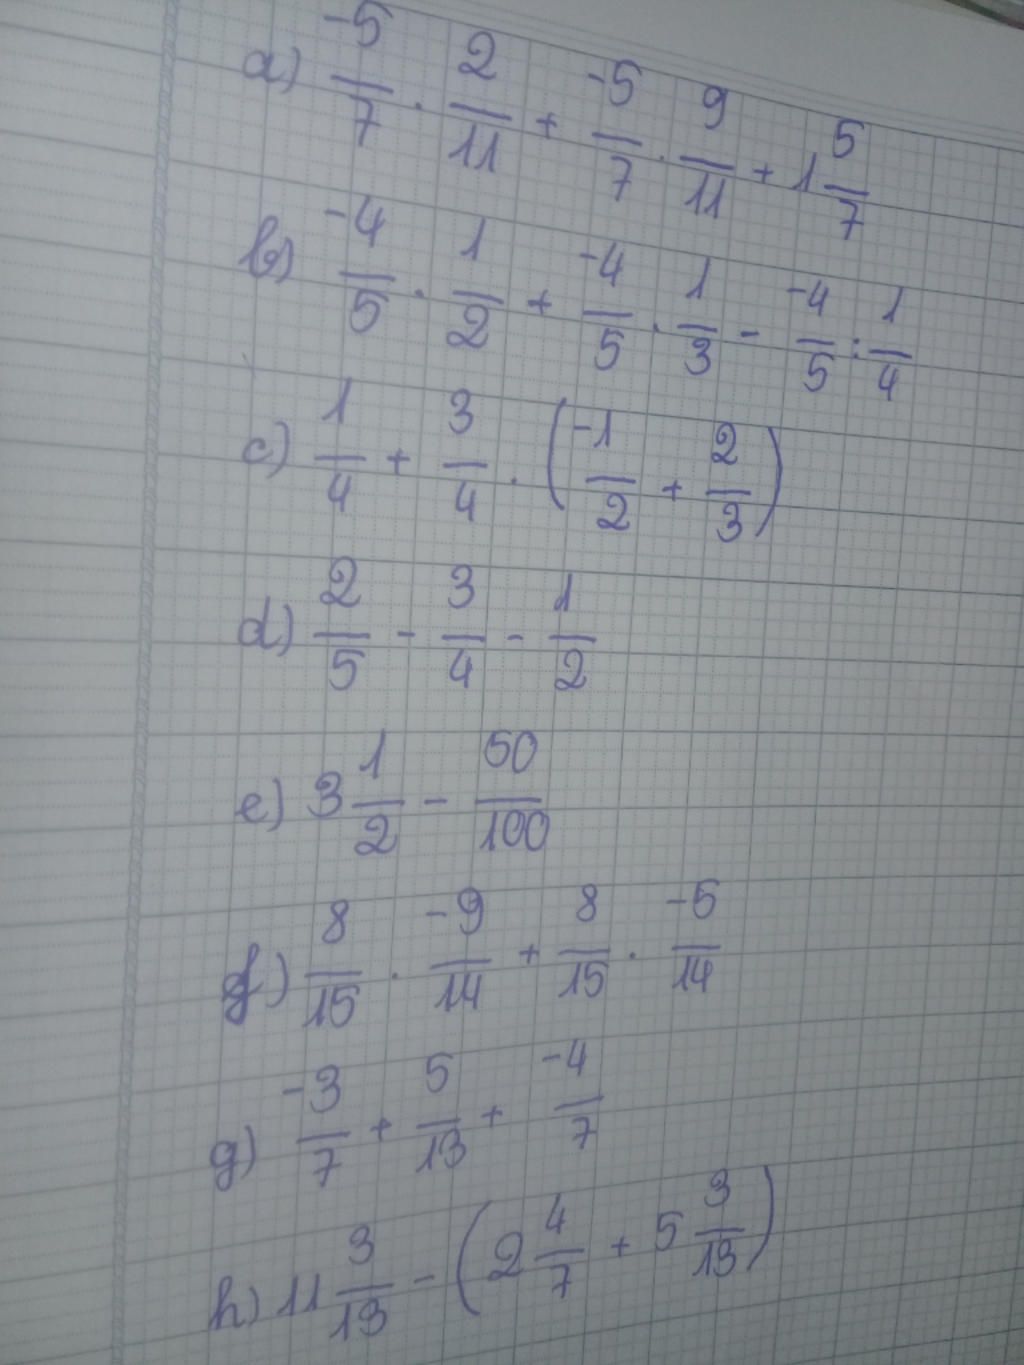 a) -5/7 . 2/11 + -5/7 . 9/11 + 1 5/7
b) -4/5 . 1/2 + -4/5 . 1/3 - -4/5 : 1/4
c) 1/4 + 3/4 . (-1/2 + 2/3)
d) 2/5 - 3/4 - 1/2
e) 3 1/2 - 50/100
f) 8/15 . -9/14 + 8/15 . -5/14
g) -3/7 + 5/13 + -4/7
h) 11 3/13 - (2 4/7 + 5 3/13)